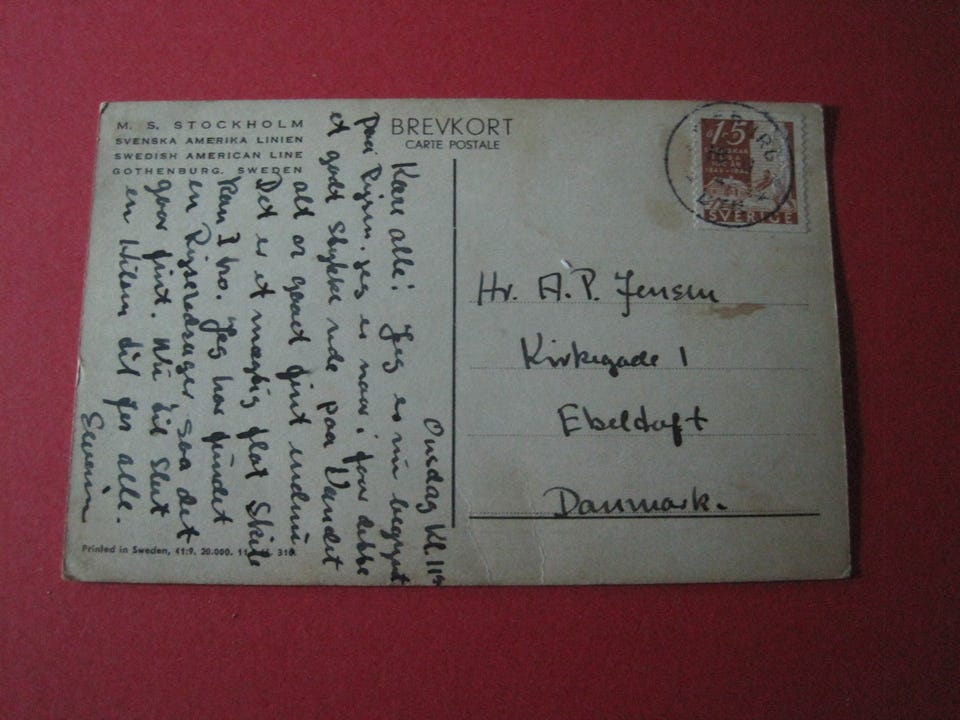 M. S. STOCKHOLM
SVENSKA AMERIKA LINIEN
SWEDISH AMERICAN LINE
GOTHENBURG. SWEDEN
BREVKORT
CARTE POSTALE
15
SVERIGE
Onsdag Kl. 11
Kære alle! Jeg er nu begyndt
paa Rejsen. Jeg er naar I faar dette
et godt Stykke ude paa Vandet
alt er gaaet fint endnu
Det er et mægtig flot Skib
kan I tro. Jeg har fundet
en saa det
gaar fint. Nu til Slut
en Hilsen til jer alle.
Hr. A. P. Jensen
Kirkegade 1
Ebeltoft
Danmark.
Printed in Sweden, 41:9. 20.000. 310